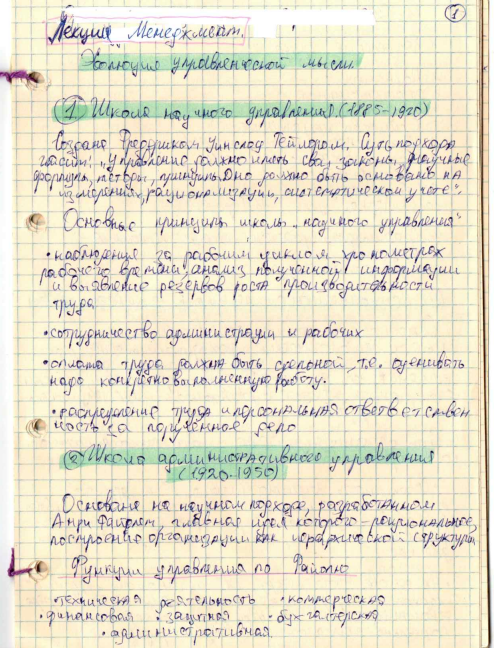 1
Лекция Менеджмент.
Эволюция управленческой мысли.
1 Школа научного управления. (1885-1920)
Создана Фредриком Уинслоу Тейлором. Суть подхода
гласит: „Управление должно иметь свои законы, научные
формулы, методы, принципы. Оно должно быть основано на
измерениях, рационализации, систематическом учете".
Основные принципы школы „научного управления"
• наблюдение за рабочим циклом, хронометраж
рабочего времени, анализ полученной информации
и выявление резервов роста производительности
труда
• сотрудничество администрации и рабочих
• оплата труда должна быть сдельной, т.е. оценивать
надо конкретно выполненную работу.
• распределение труда и персональная ответствен
ность за порученное дело
2 Школа административного управления
(1920-1950)
Основана на научном подходе, разработанном
Анри Файолем, главная идея которого - рациональное
построение организации как иерархической структуры
Функции управления по Файолю
• техническая деятельность • коммерческая
• финансовая • защитная • бухгалтерская
• административная